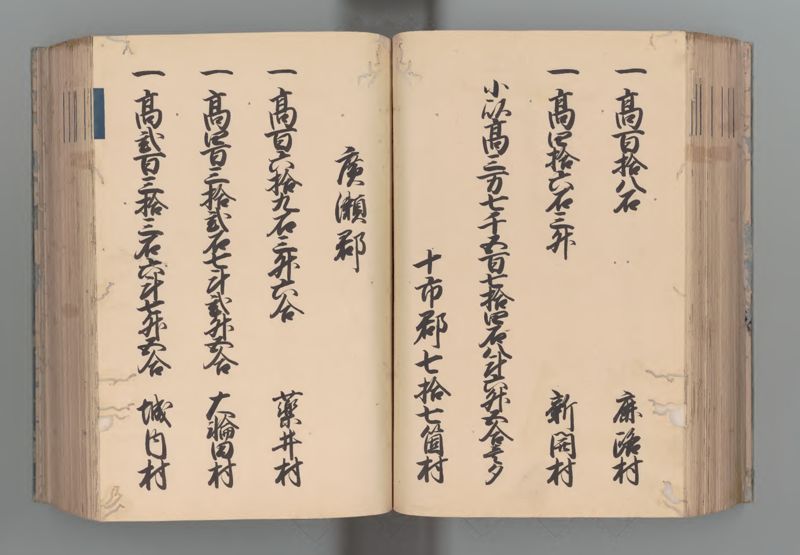 一 高百拾八石 麻路村
一 高四拾六石三升 新同村
小以高三万七千五百七拾四石八斗六升五合壱夕
十市郡七拾七箇村
廣瀬郡
一 高百六拾九石三升六合 薬井村
一 高四百三拾弐石七斗弐升五合 大輪田村
一 高弐百三拾三石六斗七升五合 城内村